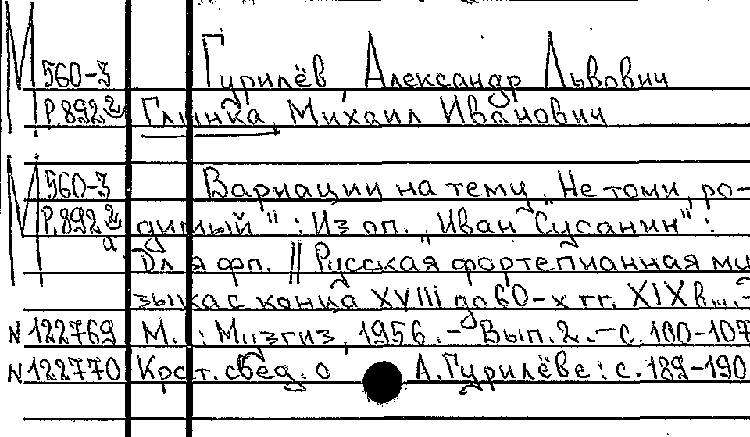 М 560-3 Гурилёв, Александр Львович
Р.892 2 Глинка, Михаил Иванович
М 560-3 Вариации на тему „Не томи, ро-
Р.892 2 димый" : Из оп. „Иван Сусанин" :
а Для фп. || Русская фортепианная му
зыка с конца XVIII до 60-х гг. XIX в.. -
N 122769 М. : Музгиз, 1956. - Вып. 2. - с. 100-107
N 122770 Крат. свед. о А. Гурилёве : с. 189-190